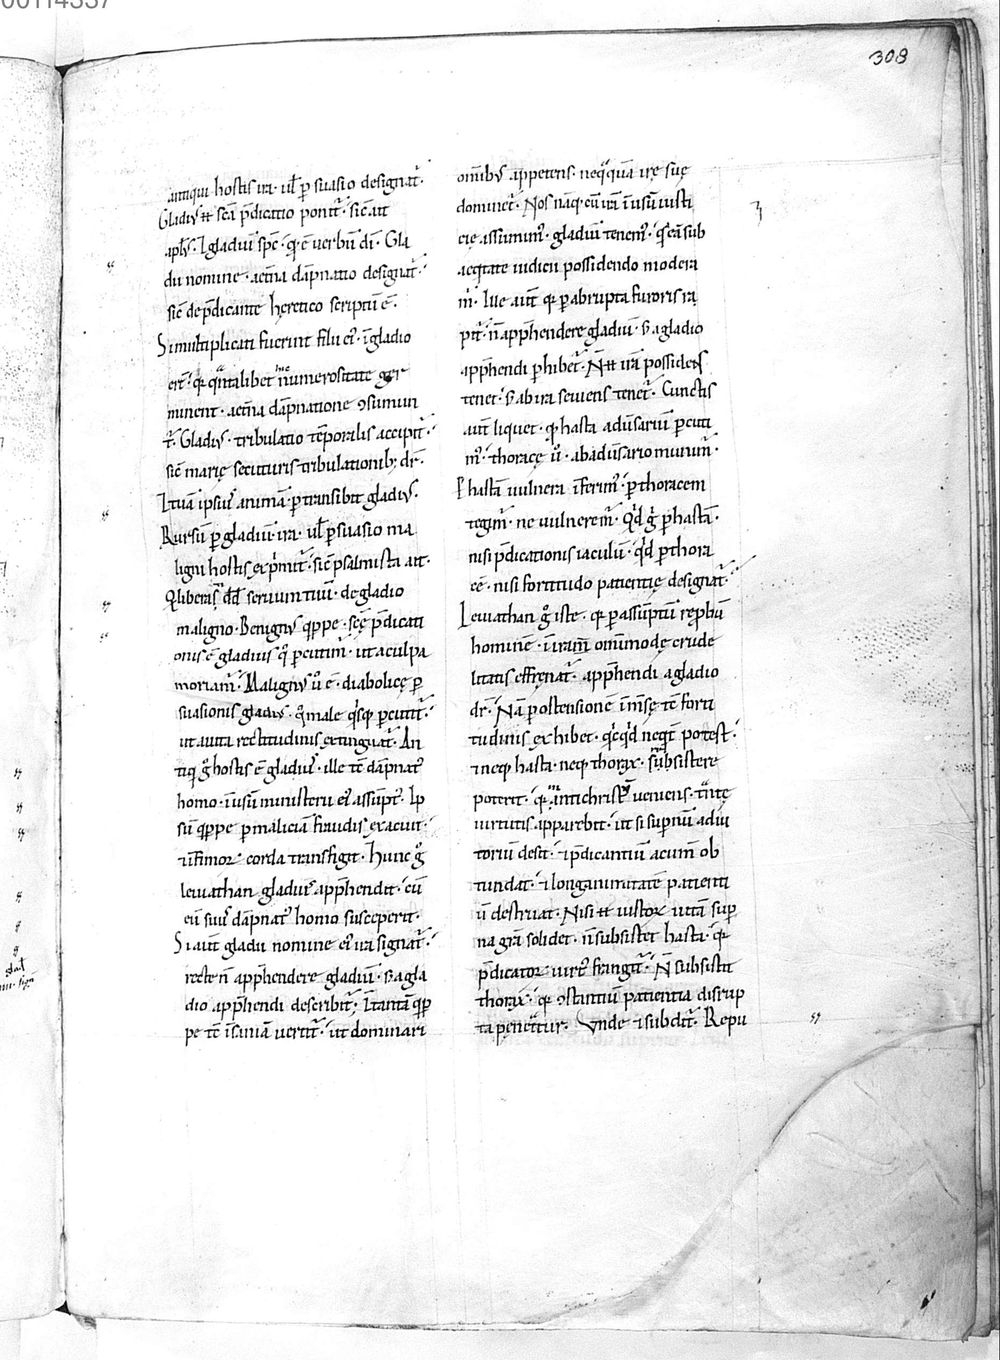 00114337
308
antiqui hostis ira· ul̄ p̄ suasio designat᷑·
Gladiꝰ ħ sc̄a p̄dicatio ponit᷑· sic̄ ait
apl̄s· ⁊ gladiū sp̄c· qđ ē uerbū dī· Gla
dii nomine· aet̄na dāpnatio designat᷑·
sic̄ de p̄dicante hęretico scriptū ē·
Si multiplicati fuerint filii eiꝰ· ī gladio
er̄t· q̄ quātalibet hīc numerositate ger
minent· aet̄na dāpnatione ꝯsumun
t᷑· Gladiꝰ· tribulatio tēporalis accipit᷑·
sic̄ marię secuturis tribulationib; dr̄·
⁊ tuā ipsiꝰ animā· ꝑtransibit gladiꝰ·
Rursū ꝑ gladiū· ira· ul̄ ꝑsuasio ma
ligni hostis exp̄mit᷑· sic̄ psalmista ait·
Qi liberas dd̄ seruum tuū· de gladio
maligno· Benignꝰ qippe· sc̄ę p̄dicati
onis ē gladius qo ꝑcutim᷑· ut a culpa
moriam᷑· Malignꝰ ū ē· diabolicę ꝑ
suasionis gladiꝰ· qo male qisq; ꝑcutit᷑·
ut a uita rectitudinis extinguat᷑· An
tiqi g̊ hostis ē gladiꝰ· ille tē dāpnatꝰ
homo· ī usū ministerii eiꝰ assūptꝰ· Ip
sū qippe ꝑ malicia fraudis exacuit·
⁊ īfirmoꝝ corda transfigit· Hunc g̊
leuiathan gladiꝰ app̄hendit· cū
eū suiꝰ dāpnatꝰ homo susceperit·
Si aut̄ gladii nomine eiꝰ ira signat᷑·
recte n̄ app̄hendere gladiū· s; a gla
dio app̄hendi describit᷑· In tantā qip
pe tē īsaniā uertit᷑· ut dominari
omībꝰ appetens· neqaquā irę suę
dominet᷑· Nos nāq; cū irā ī usū iusti
cię assumim᷑· gladiū tenem᷑· qđ eā sub
aeq̄tate iudicii possidendo modera
m᷑· Ille aut̄ q̄ ꝑ abrupta furoris ra
pit᷑· n̄ app̄hendere gladiū s; a gladio
app̄hendi ꝑhibet᷑· N̄ ħ irā possidens
tenet· s; ab ira seuiens tenet᷑· Cunctis
aut̄ liquet· q̄ hasta aduersariū ꝑcuti
m᷑· thorace ū· ab aduersario munim᷑·
P hastā uulnera īferim᷑· ꝑ thoracem
tegim᷑· ne uulnerem᷑· Qid g̊ ꝑ hastā·
nisi p̄dicationis iaculū· qid ꝑ thora
cē· nisi fortitudo patientię designat᷑·
Leuiathan g̊ iste· q̄ ꝑ assūptū rep̄bū
hominē· ī irarū omnimodę crude
litatis effrenat᷑· app̄hendi a gladio
dr̄· Nā ꝑ ostensionē īmēsę tē forti
tudinis exhibet· qicqid neqit potest·
⁊ neq; hasta· neq; thorax· subsistere
poterit· q̄ antichristꝰ ueniens· tātę
uirtutis apparebit· ut si supnū adiu
toriū desit· ⁊ p̄dicantiū acumen ob
tundat· ⁊ longanimitatē patienti
ū destruat· Nisi ħ iustoꝝ uitā sup
na gr̄a solidet· n̄ subsistet hasta· q̄
p̄dicatoꝝ uirtꝰ frangit᷑· N̄ subsistit
thorax· q̄ ꝯstantiū patientia disrup
ta penetratur· Vnde ⁊ subdit᷑· Repu